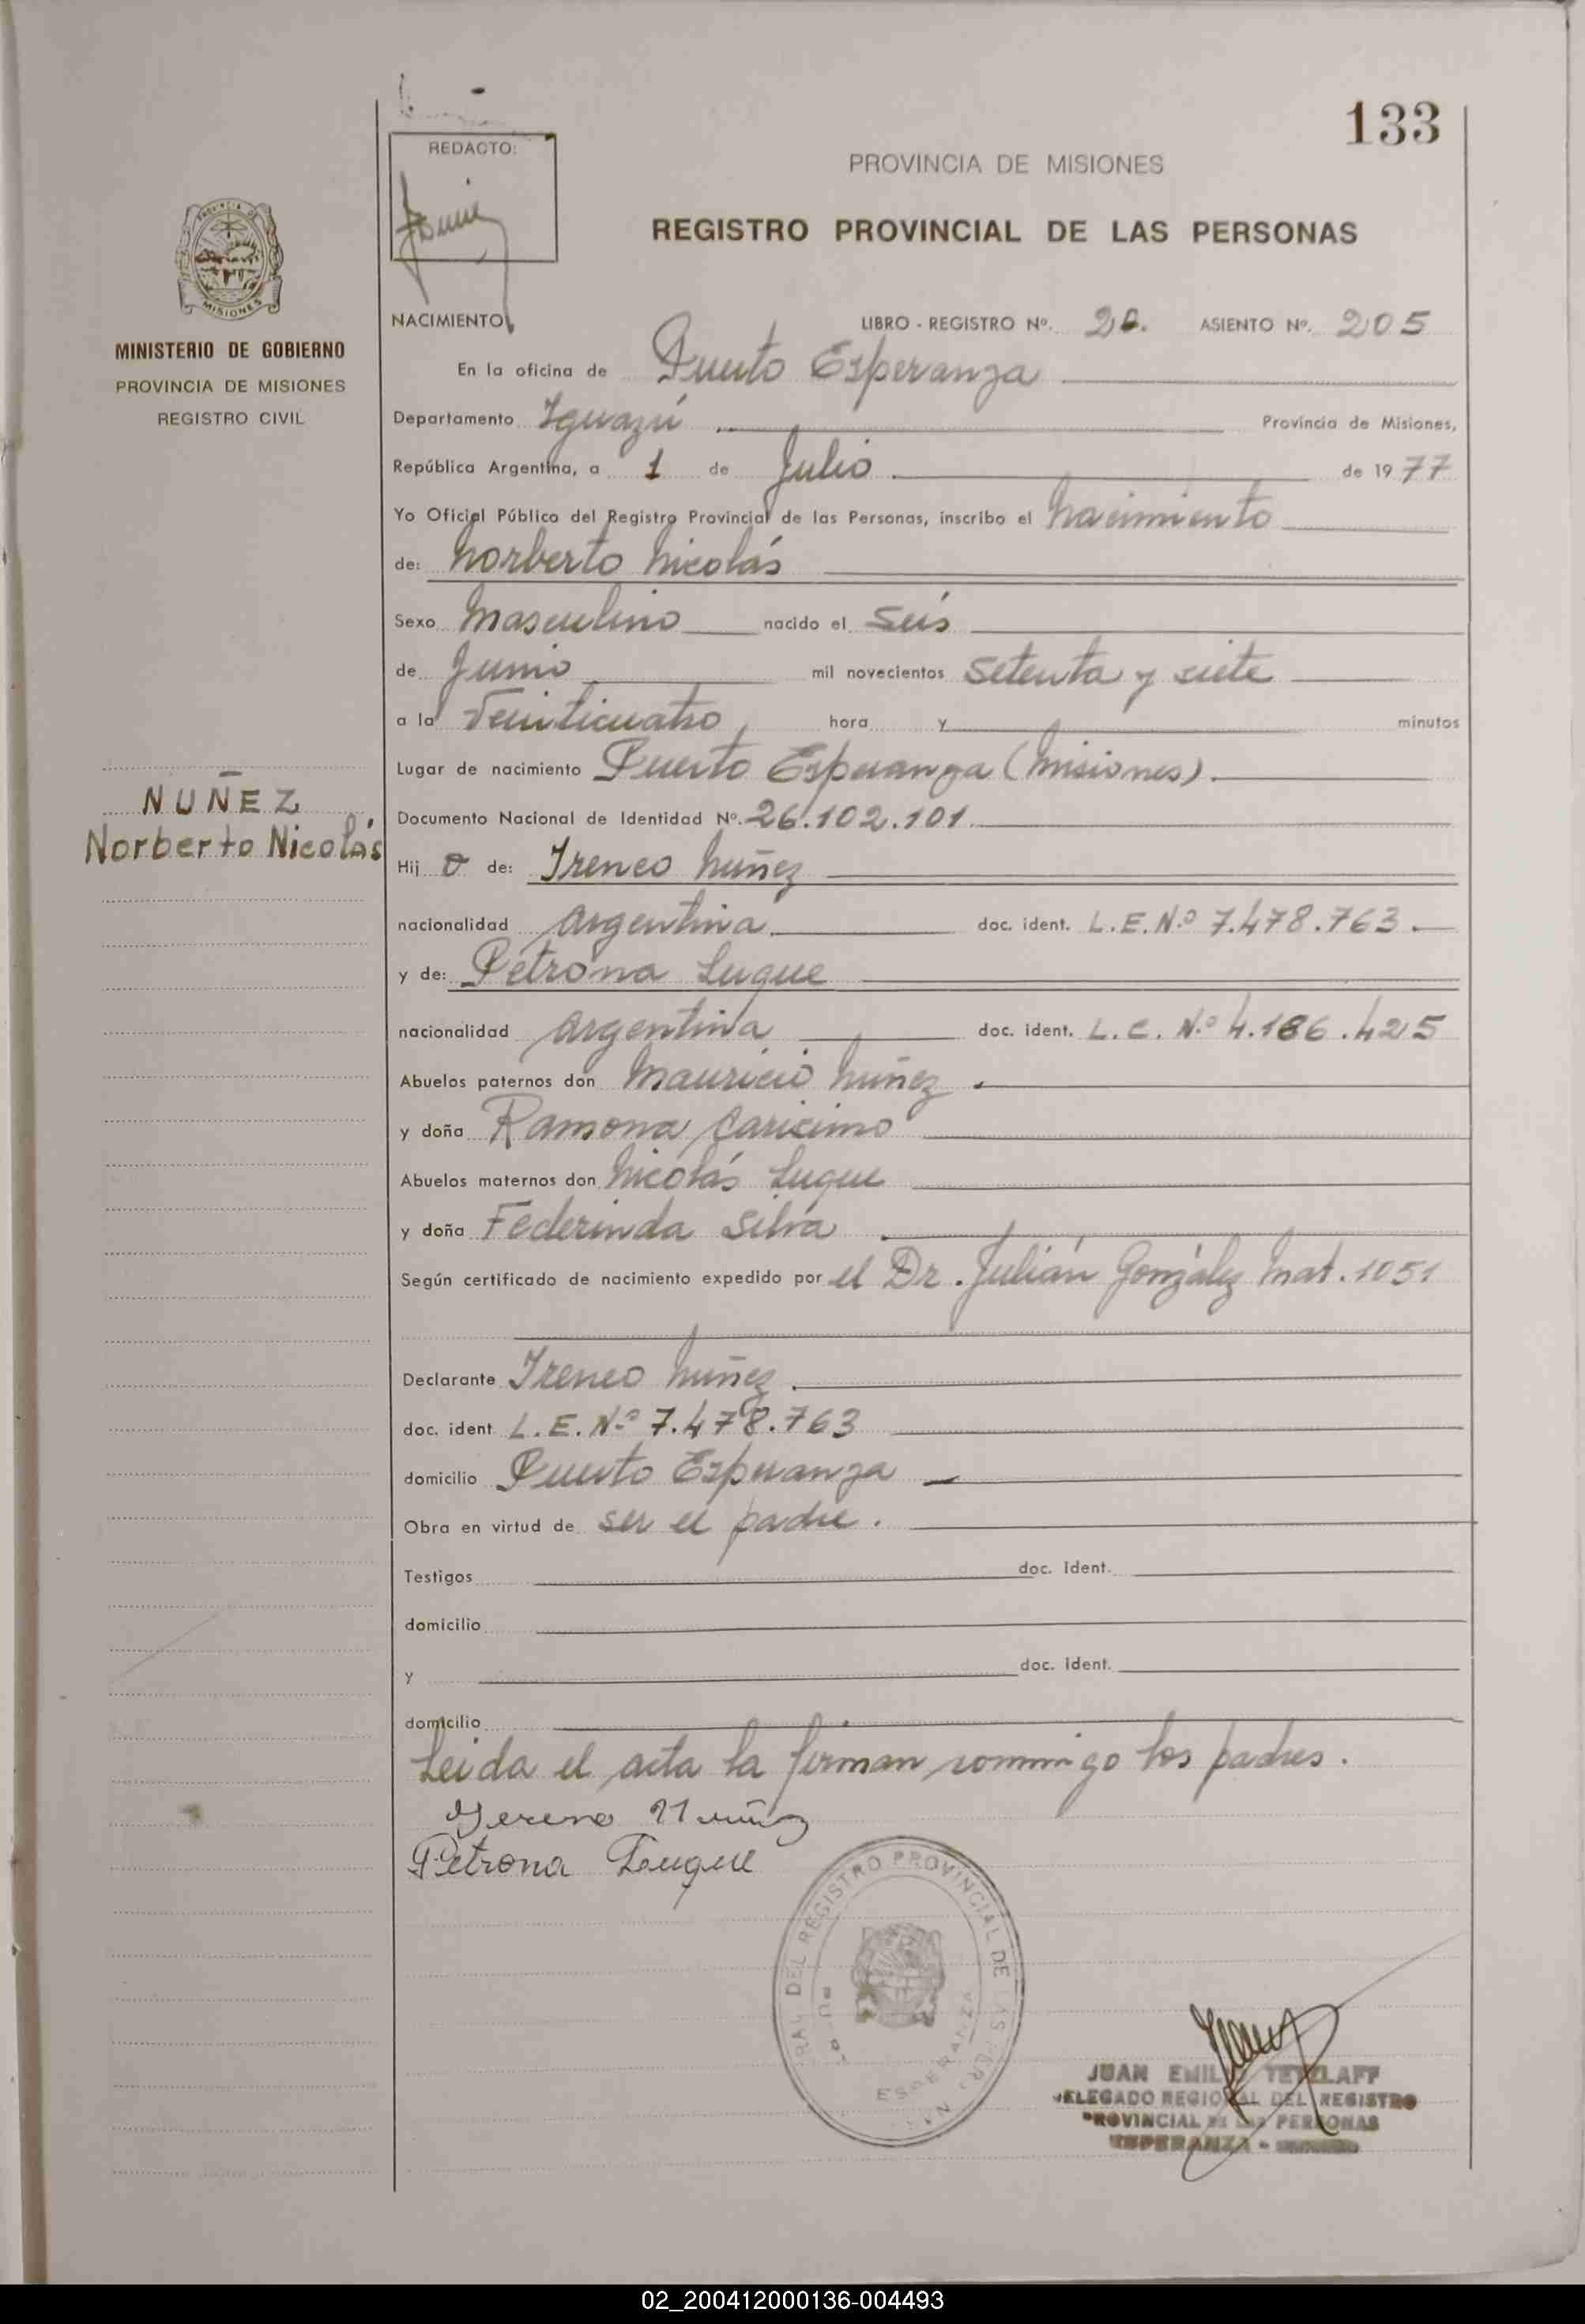 133
REDACTO:
PROVINCIA DE MISIONES
REGISTRO PROVINCIAL DE LAS PERSONAS
MISIONES
MINISTERIO DE GOBIERNO
PROVINCIA DE MISIONES
REGISTRO CIVIL
NACIMIENTO LIBRO - REGISTRO Nº. ASIENTO Nº. 205
En la oficina de Puerto Esperanza
Departamento Iguazú Provincia de Misiones,
República Argentina, a 1 de Julio de 1977
Yo Oficial Público del Registro Provincial de las Personas, inscribo el Nacimiento
de: Norberto Nicolás
Sexo Masculino nacido el Seis
de Junio mil novecientos Setenta y siete
a la Veinticuatro hora y minutos
Lugar de nacimiento Puerto Esperanza (Misiones).
NUÑEZ
Norberto Nicolás
Documento Nacional de Identidad Nº. 26.102.101
Hij o de: Ireneo Nuñez
nacionalidad Argentina. doc. ident. L.E.Nº 7.478.763.
y de: Petrona Luque
nacionalidad Argentina doc. ident. L.C. Nº 4.186.425
Abuelos paternos don Mauricio Nuñez.
y doña Ramona
Abuelos maternos don Nicolás Luque
y doña Federinda Silva
Según certificado de nacimiento expedido por el Dr. Julián González Mat. 1051
Declarante Ireneo Nuñez.
doc. ident. L.E.Nº 7.478.763
domicilio Puerto Esperanza
Obra en virtud de ser el padre.
Testigos doc. ident.
domicilio
y doc. ident.
domicilio
Leida el acta la firman conmigo los padres.
Yreneo Nuñez
Petrona Luque
DEL REGISTRO PROVINCIAL DE LAS PERSONAS
ESPERANZA
JUAN EMILIO TETZLAFF
DELEGADO REGIONAL DEL REGISTRO
PROVINCIAL DE LAS PERSONAS
ESPERANZA -
02_200412000136-004493